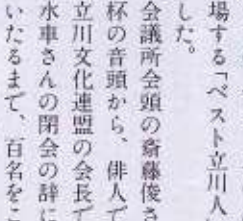 場する「ベスト立川人
した。
会議所会頭の斎藤俊さ
杯の音頭から、俳人で
立川文化連盟の会長で
水車さんの閉会の辞に
いたるまで、百名をこ